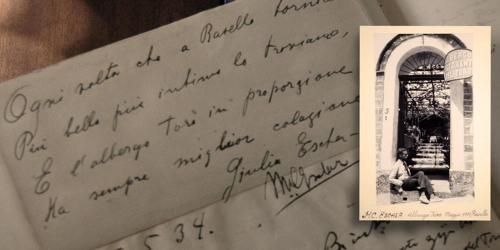 Ogni volta che a Ravello torniamo
Più bello più intimo lo troviamo,
E l'albergo Toro in proporzione
Ha sempre miglior colazione
Giulia Escher-
MCEscher
5.34.
M.C. ESCHER Albergo Toro Maggio Ravello